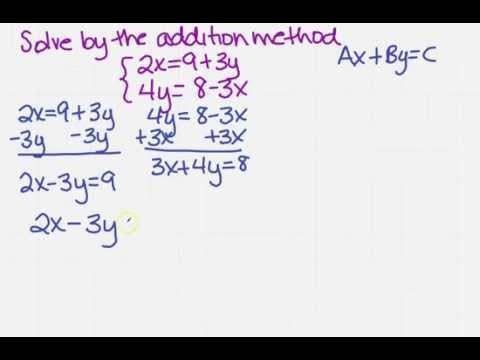 Solve by the addition method
Ax+By=C
{2x=9+3y
4y= 8-3x
2x=9+3y
-3y -3y
2x-3y=9
4y=8-3x
+3x +3x
3x+4y=8
2x-3y